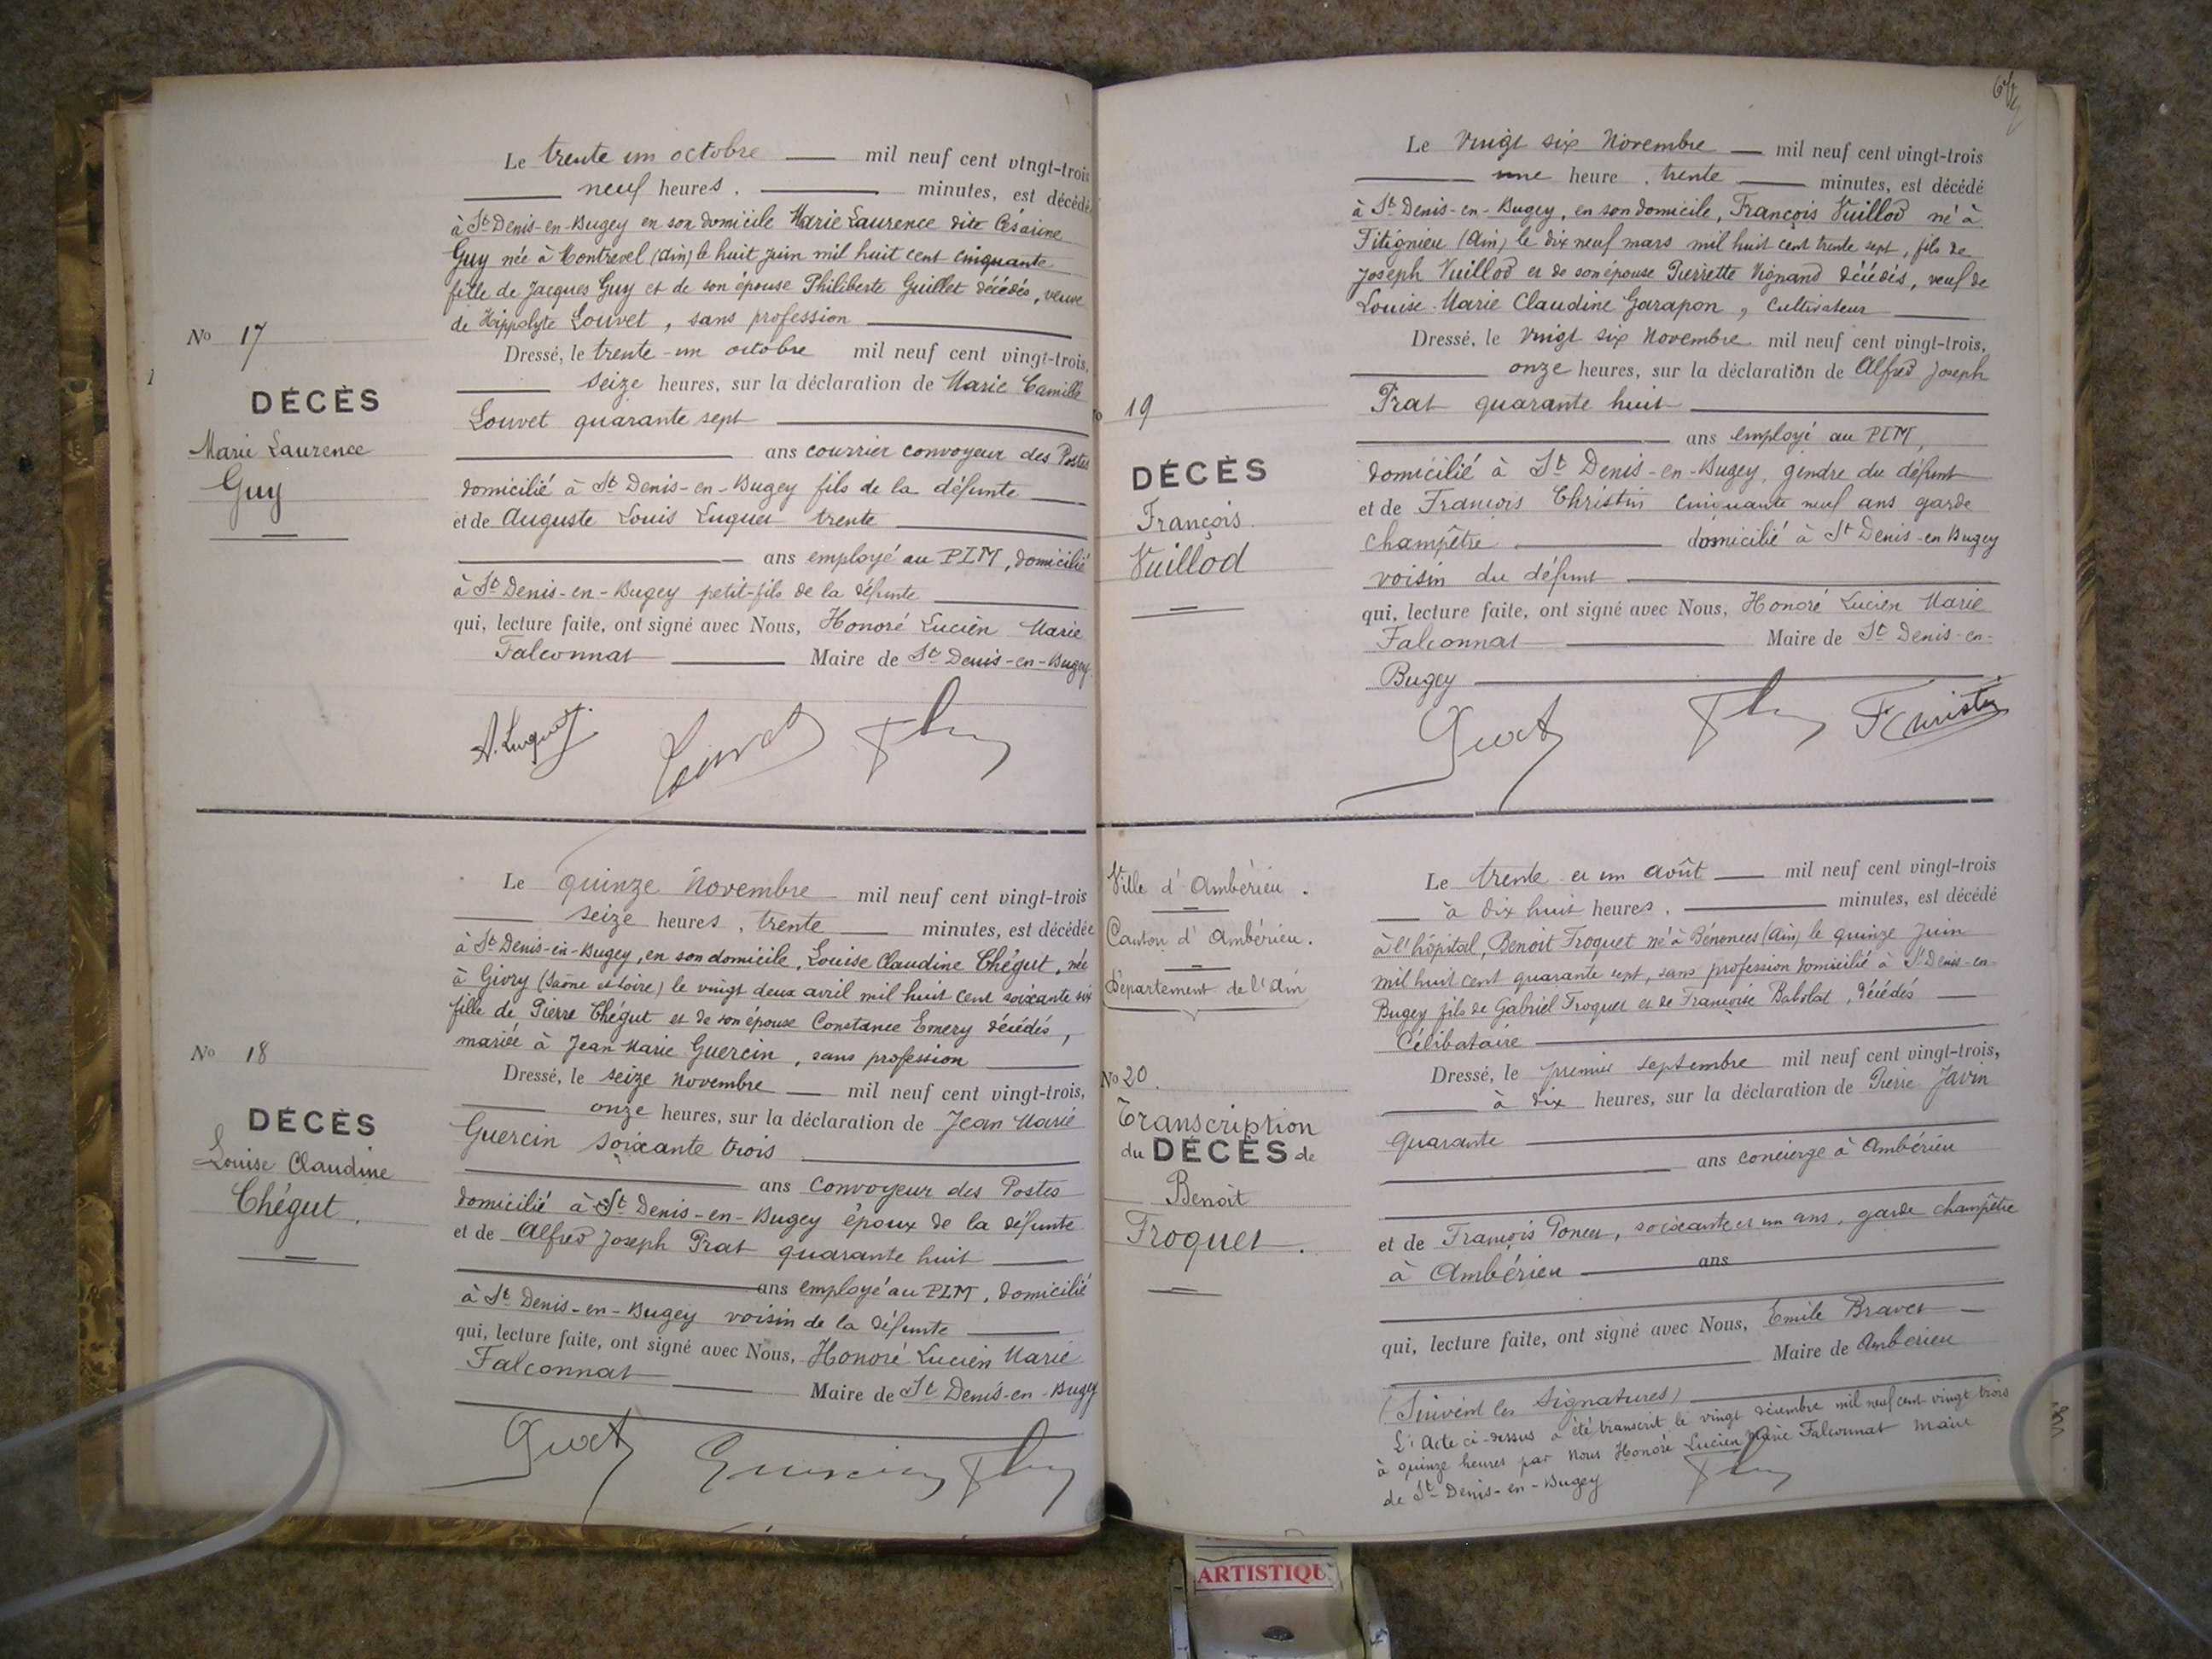 Le trente un octobre mil neuf cent vingt-trois
neuf heures, minutes, est décédée
à St Denis-en-Bugey en son domicile Marie Laurence dite Césarine
Guy née à Montrevel (Ain) le huit juin mil huit cent cinquante
fille de Jacques Guy et de son épouse Philiberte Guillet décédés, veuve
de Hippolyte Louvet, sans profession
No 17
DÉCÈS
Marie Laurence
Guy
Dressé, le trente-un octobre mil neuf cent vingt-trois,
seize heures, sur la déclaration de Marie Camille
Louvet quarante sept
ans courrier convoyeur des Postes
domicilié à St Denis-en-Bugey fils de la défunte
et de Auguste Louis Luquet trente
ans employé au PLM, domicilié
à St Denis-en-Bugey petit-fils de la défunte
qui, lecture faite, ont signé avec Nous, Honoré Lucien Marie
Falconnat Maire de St Denis-en-Bugey
A. Luquet Louvet
Le quinze Novembre mil neuf cent vingt-trois
seize heures, trente minutes, est décédée
à St Denis-en-Bugey, en son domicile, Louise Claudine Chégut, née
à Givry (Saône et Loire) le vingt deux avril mil huit cent soixante six
fille de Pierre Chégut et de son épouse Constance Emery décédés,
mariée à Jean Marie Guercin, sans profession
No 18
DÉCÈS
Louise Claudine
Chégut.
Dressé, le seize novembre mil neuf cent vingt-trois,
onze heures, sur la déclaration de Jean Marie
Guercin soixante trois
ans convoyeur des Postes
domicilié à St Denis-en-Bugey époux de la défunte
et de Alfred Joseph Prat quarante huit
ans employé au PLM, domicilié
à St Denis-en-Bugey voisin de la défunte
qui, lecture faite, ont signé avec Nous, Honoré Lucien Marie
Falconnat Maire de St Denis-en-Bugey
Guercin
Le Vingt six Novembre mil neuf cent vingt-trois
une heure, trente minutes, est décédé
à St Denis-en-Bugey, en son domicile, François Vuillod né à
Titignieu (Ain) le dix neuf mars mil huit cent trente sept, fils de
Joseph Vuillod et de son épouse Pierrette Vignand décédés, veuf de
Louise Marie Claudine Garapon, Cultivateur
19
DÉCÈS
François
Vuillod
Dressé, le Vingt six Novembre mil neuf cent vingt-trois,
onze heures, sur la déclaration de Alfred Joseph
Prat quarante huit
ans employé au PLM,
domicilié à St Denis-en-Bugey, gendre du défunt
et de François Christin cinquante neuf ans garde
champêtre domicilié à St Denis-en Bugey
voisin du défunt
qui, lecture faite, ont signé avec Nous, Honoré Lucien Marie
Falconnat Maire de St Denis-en-
Bugey
F Christin
Ville d'Ambérieu.
Canton d'Ambérieu.
Département de l'Ain
No 20.
Transcription
du DÉCÈS de
Benoit
Troquet.
Le trente et un août mil neuf cent vingt-trois
à dix huit heures, minutes, est décédé
à l'hôpital, Benoit Troquet né à Bénonces (Ain) le quinze Juin
mil huit cent quarante sept, sans profession domicilié à St Denis-en-
Bugey fils de Gabriel Troquet et de Françoise Babolat, décédés
Célibataire
Dressé, le premier septembre mil neuf cent vingt-trois,
à dix heures, sur la déclaration de Pierre Javin
quarante
ans concierge à Ambérieu
et de François Poncet, soixante et un ans, garde champêtre
à Ambérieu ans
qui, lecture faite, ont signé avec Nous, Emile Bravet
Maire de Ambérieu
(Suivent les Signatures)
L'Acte ci-dessus a été transcrit le vingt décembre mil neuf cent vingt trois
à quinze heures par Nous Honoré Lucien Marie Falconnat Maire
de St-Denis-en-Bugey
ARTISTIQU